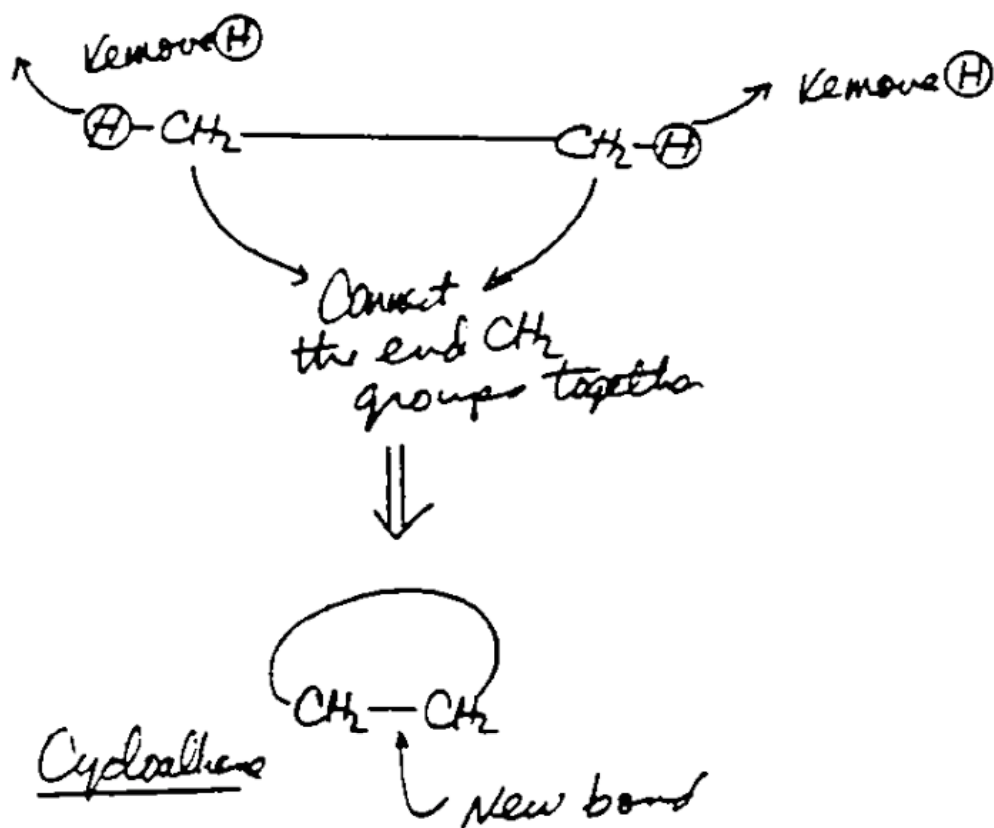 Remove H
Remove H
H-CH2 CH2-H
Connect
the end CH2
groups together
CH2 - CH2
Cycloalkane
New bond